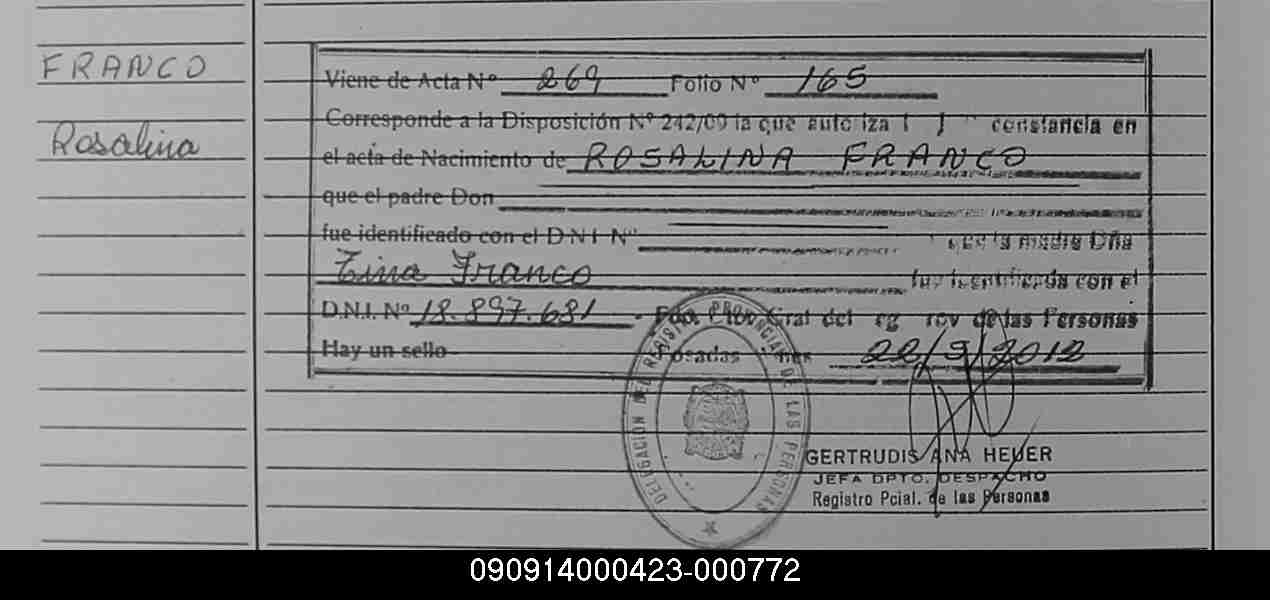 FRANCO
Rosalina
Viene de Acta Nº 269 Folio Nº 165
Corresponde a la Disposición Nº 242/09 la que autoriza ( ) constancia en
el acta de Nacimiento de ROSALINA FRANCO
que el padre Don
fue identificado con el D N I Nº que la madre Dña
Tina Franco fue identificada con el
D.N.I. Nº 18.897.681 - Fdo. Gral del de las Personas
Hay un sello Posadas Mnes 22/3/2012
DELEGACION DEL REGISTRO PROVINCIAL DE LAS PERSONAS
GERTRUDIS ANA HEUER
JEFA DPTO. DESPACHO
Registro Pcial. de las Personas
090914000423-000772